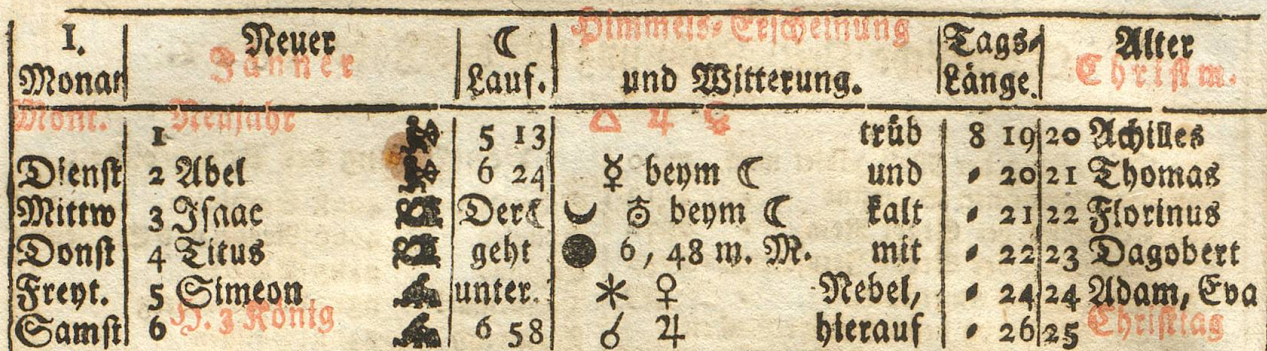 I. Neuer ☾ Himmels-Erscheinung Tags- Alter
Monat Jänner Lauf. und Witterung. Länge. Christm.
Mont. 1 Neujahr 5 13 △ ♃ ☿ trüb 8 19 20 Achilles
Dienst 2 Abel 6 24 ☿ beym ☾ und 20 21 Thomas
Mittw 3 Isaac Der☾ ♁ beym ☾ kalt 21 22 Florinus
Donst 4 Titus geht ● 6, 48 m. M. mit 22 23 Dagobert
Freyt. 5 Simeon unter. ⚹ ♀ Nebel, 24 24 Adam, Eva
Samst 6 H. 3 König 6 58 ☌ ♃ hierauf 26 25 Christtag